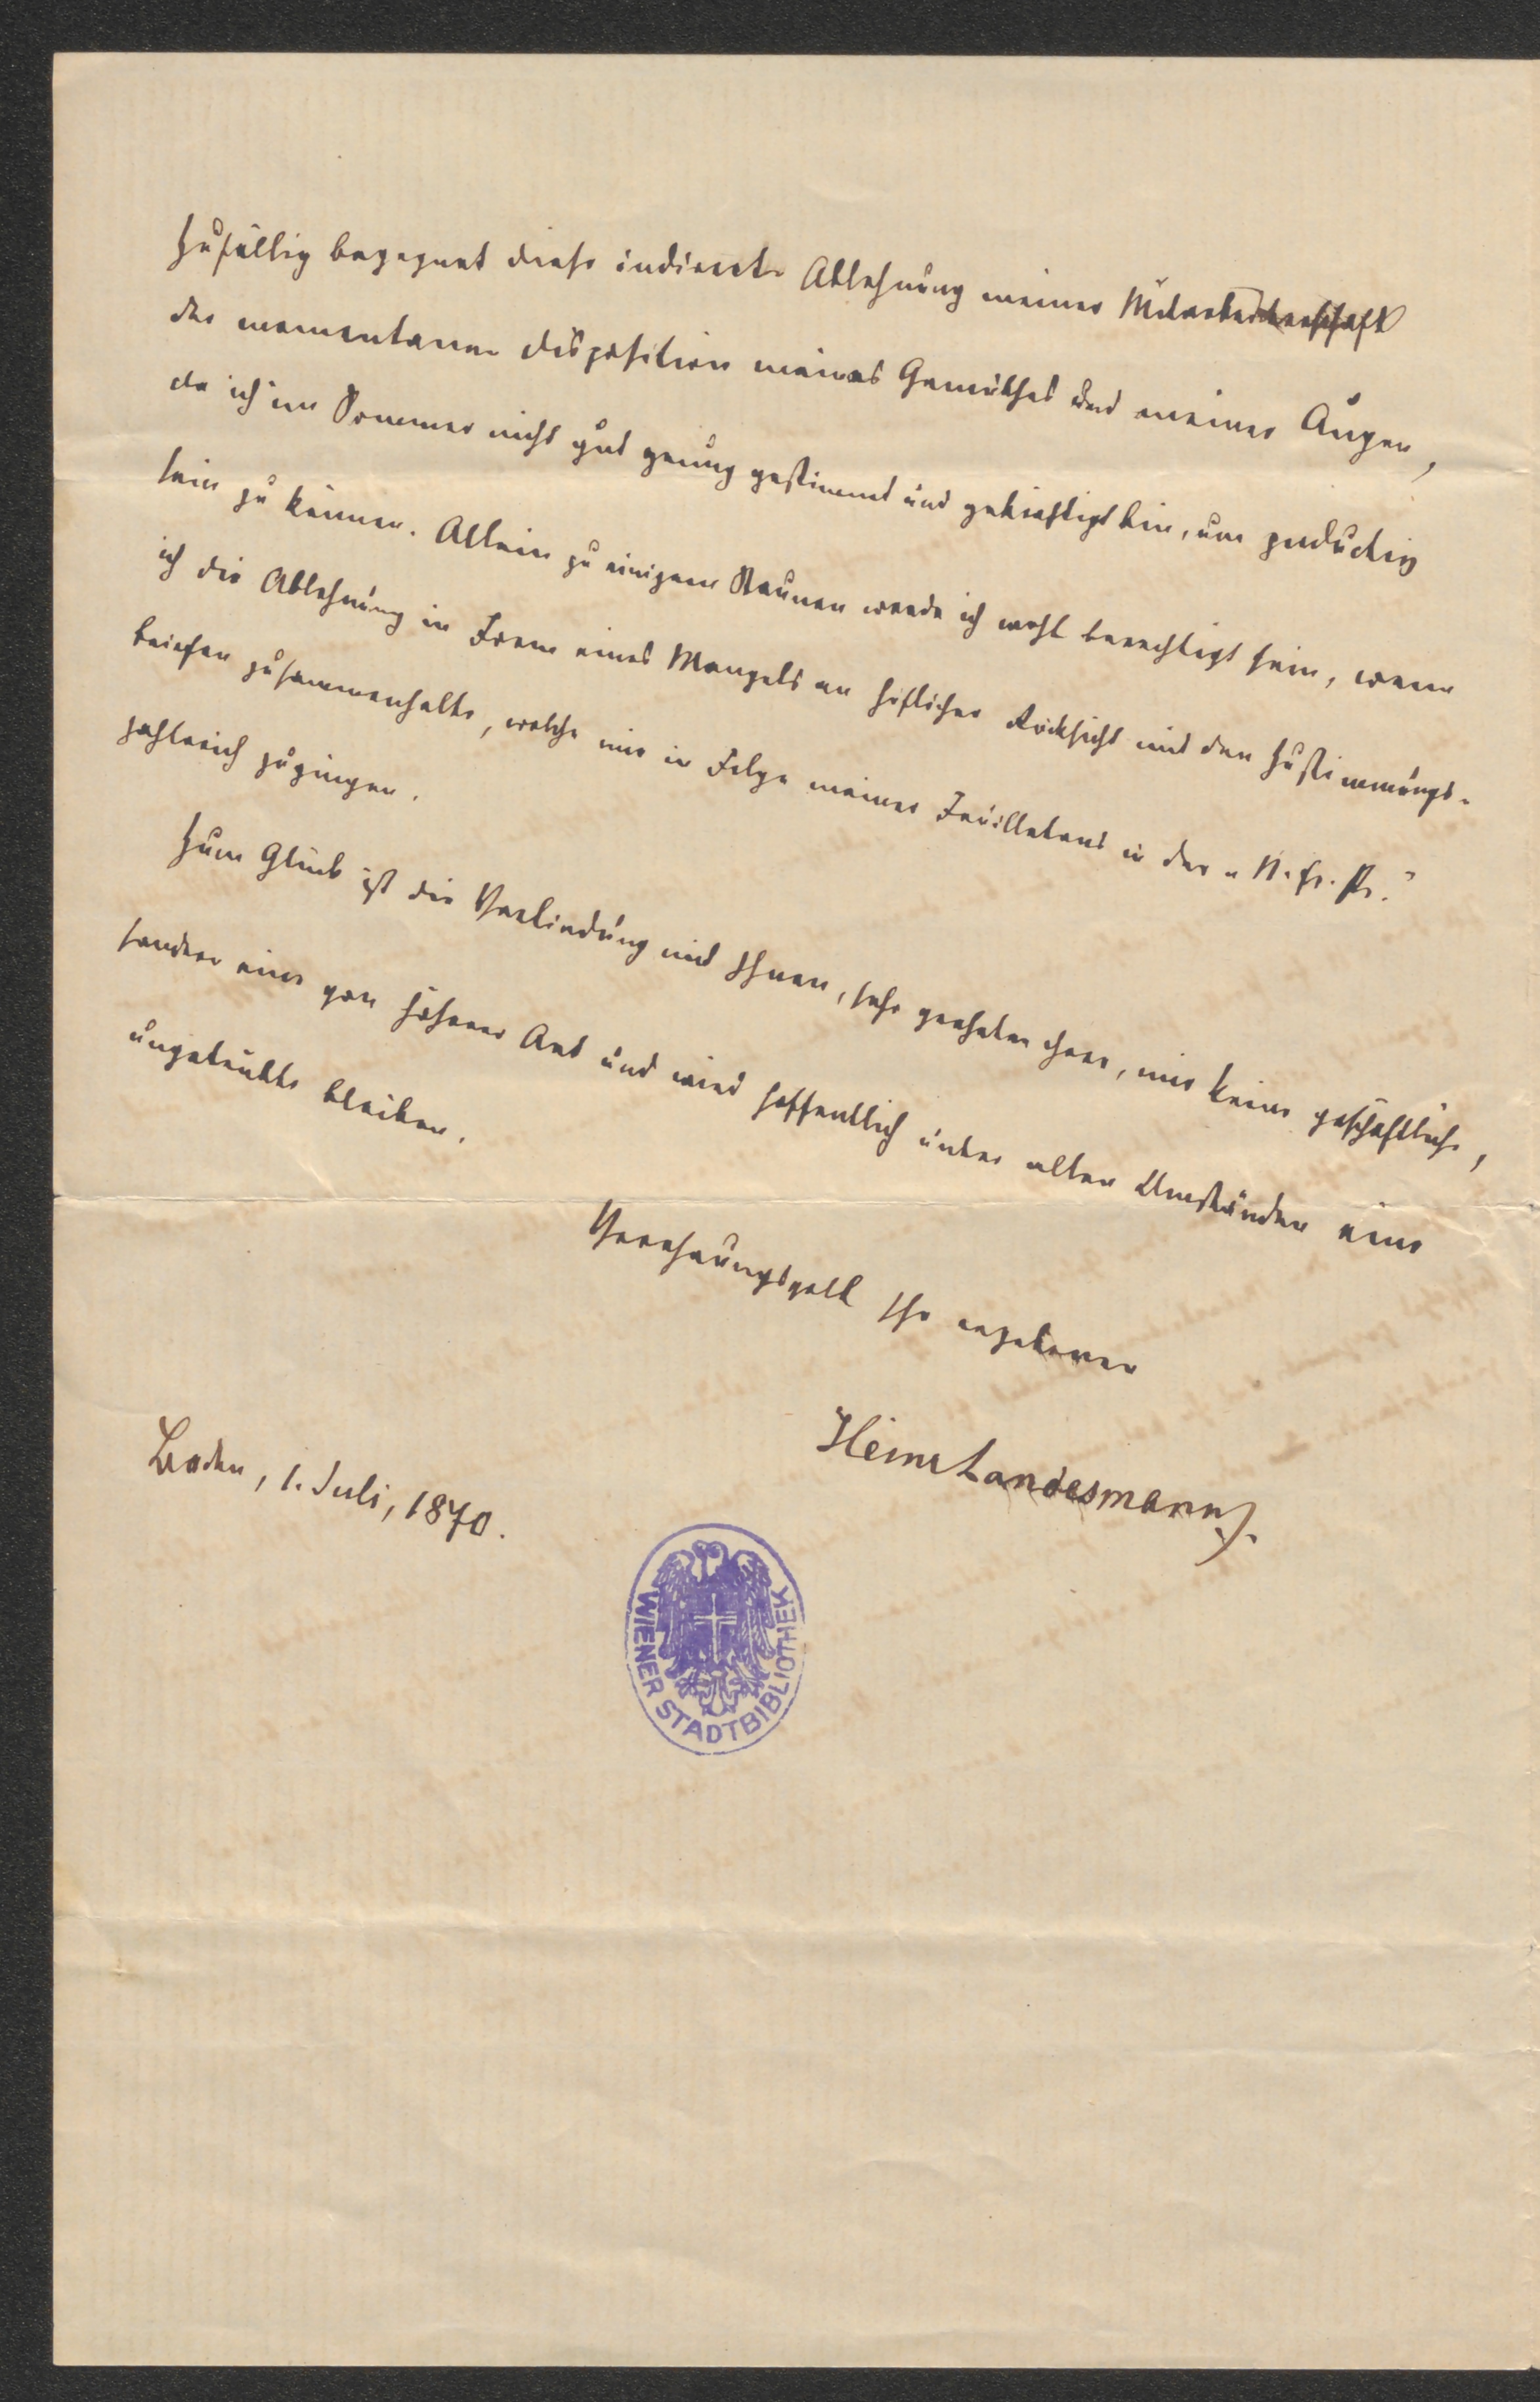 Zufällig begegnet diese indirecte Ablehnung meiner Mitarbeiterschaft
der momentanen Disposition meines Gemüthes und meiner Augen,
da ich im Sommer nicht gut genug gestimmt und gekräftigt bin, um productiv
sein zu können. Allein zu einigem Staunen werde ich wohl berechtigt sein, wenn
ich die Ablehnung in Form eines Mangels an höflicher Rücksicht mit den Zustimmungs-
briefen zusammenhalte, welche mir in Folge meiner Feuilletons in der „N. fr. Pr.“
zahlreich zugingen.
Zum Glück ist die Verbindung mit Ihnen, sehr geehrter Herr, mir keine geschäftliche,
sondern eine von höherer Art und wird hoffentlich unter allen Umständen eine
ungetrübte bleiben.
Verehrungsvoll Ihr ergebener
Heinr Landesmann
Baden, 1. Juli, 1870.
WIENER STADTBIBLIOTHEK